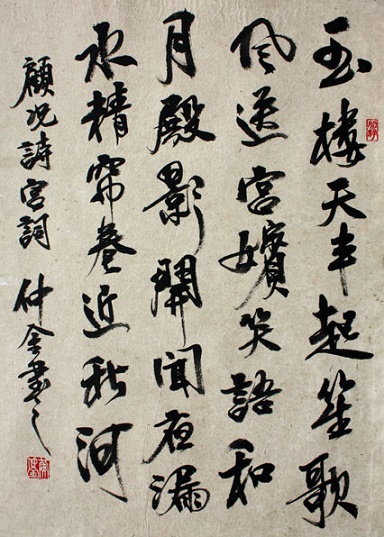 玉樓天半起笙歌
风送宮嬪笑語和
月殿影開聞夜漏
水精帘卷近秋河
顧况詩宮詞 仲書之